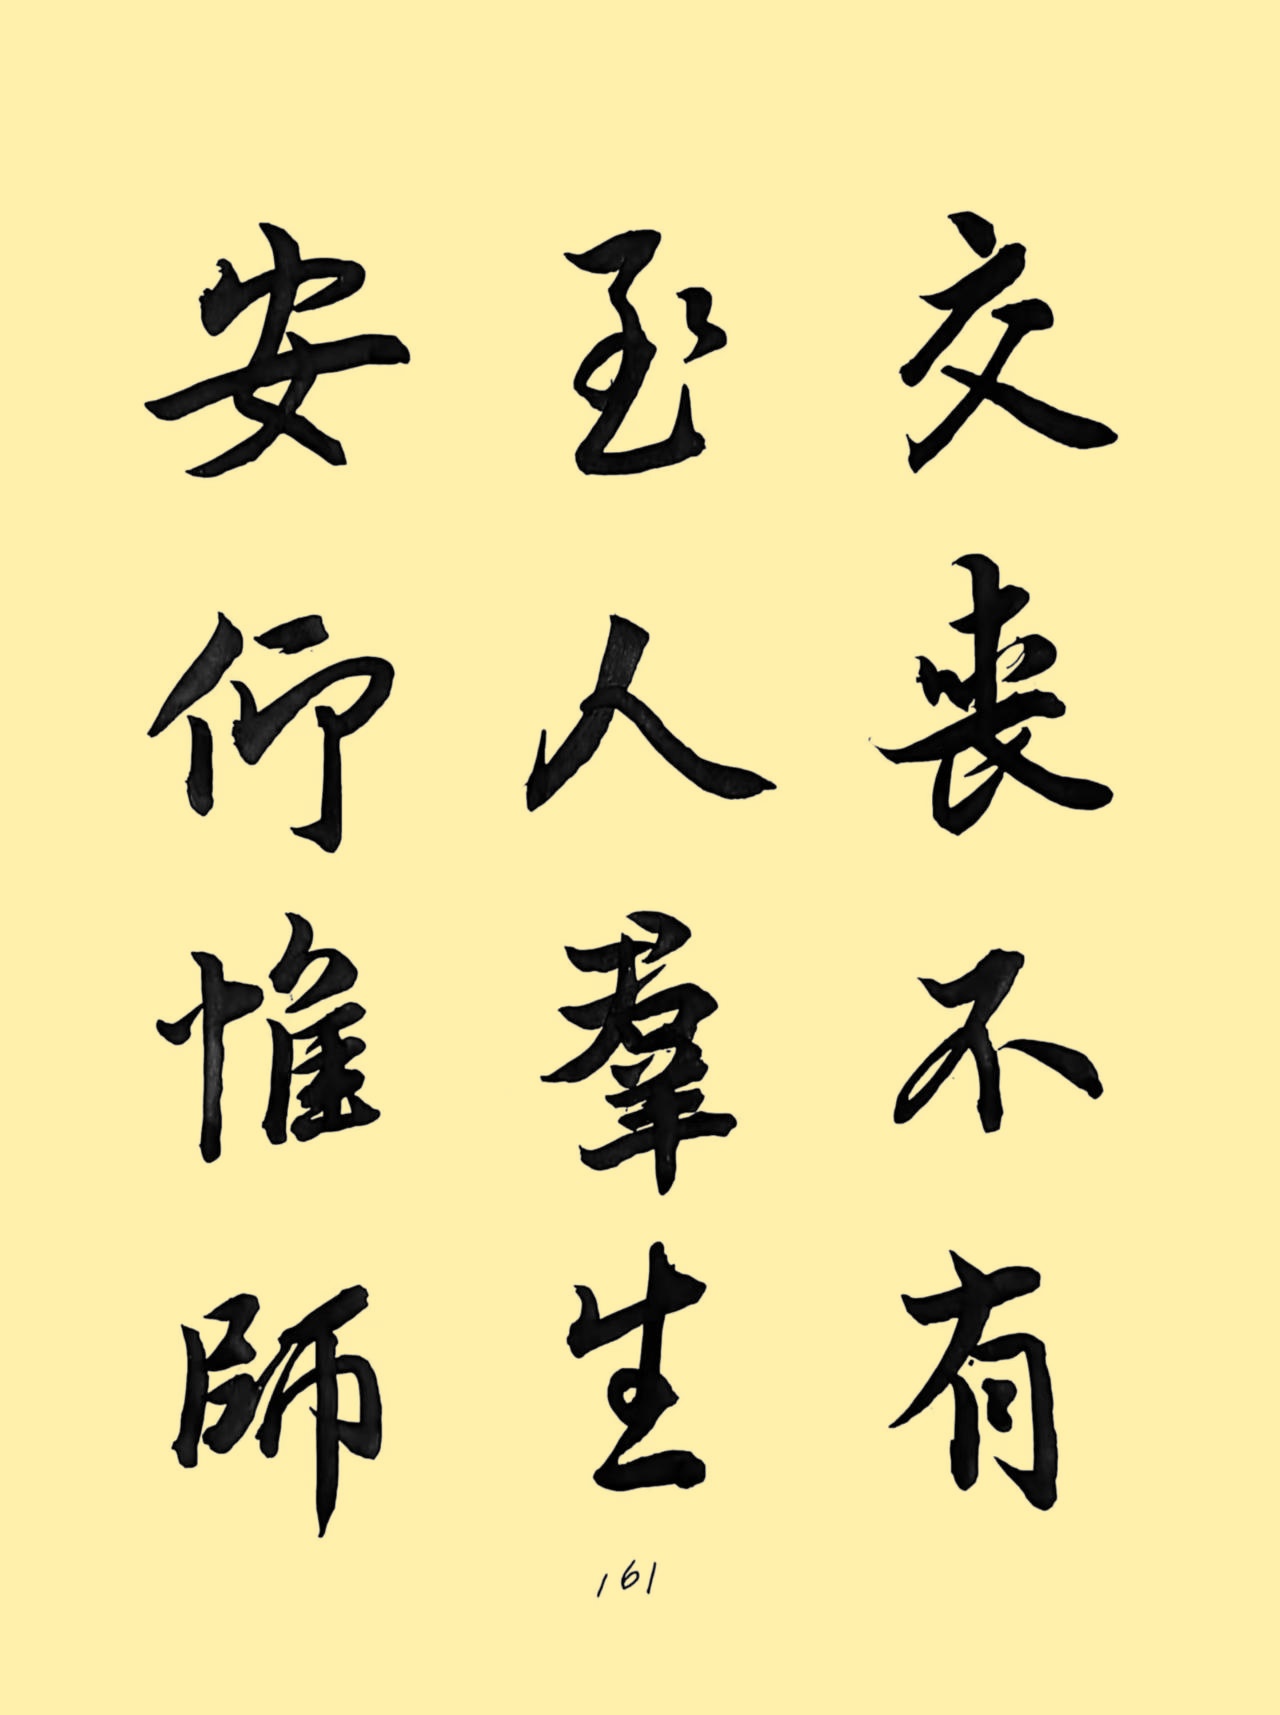 交喪不有
至人羣生
安仰惟師
161